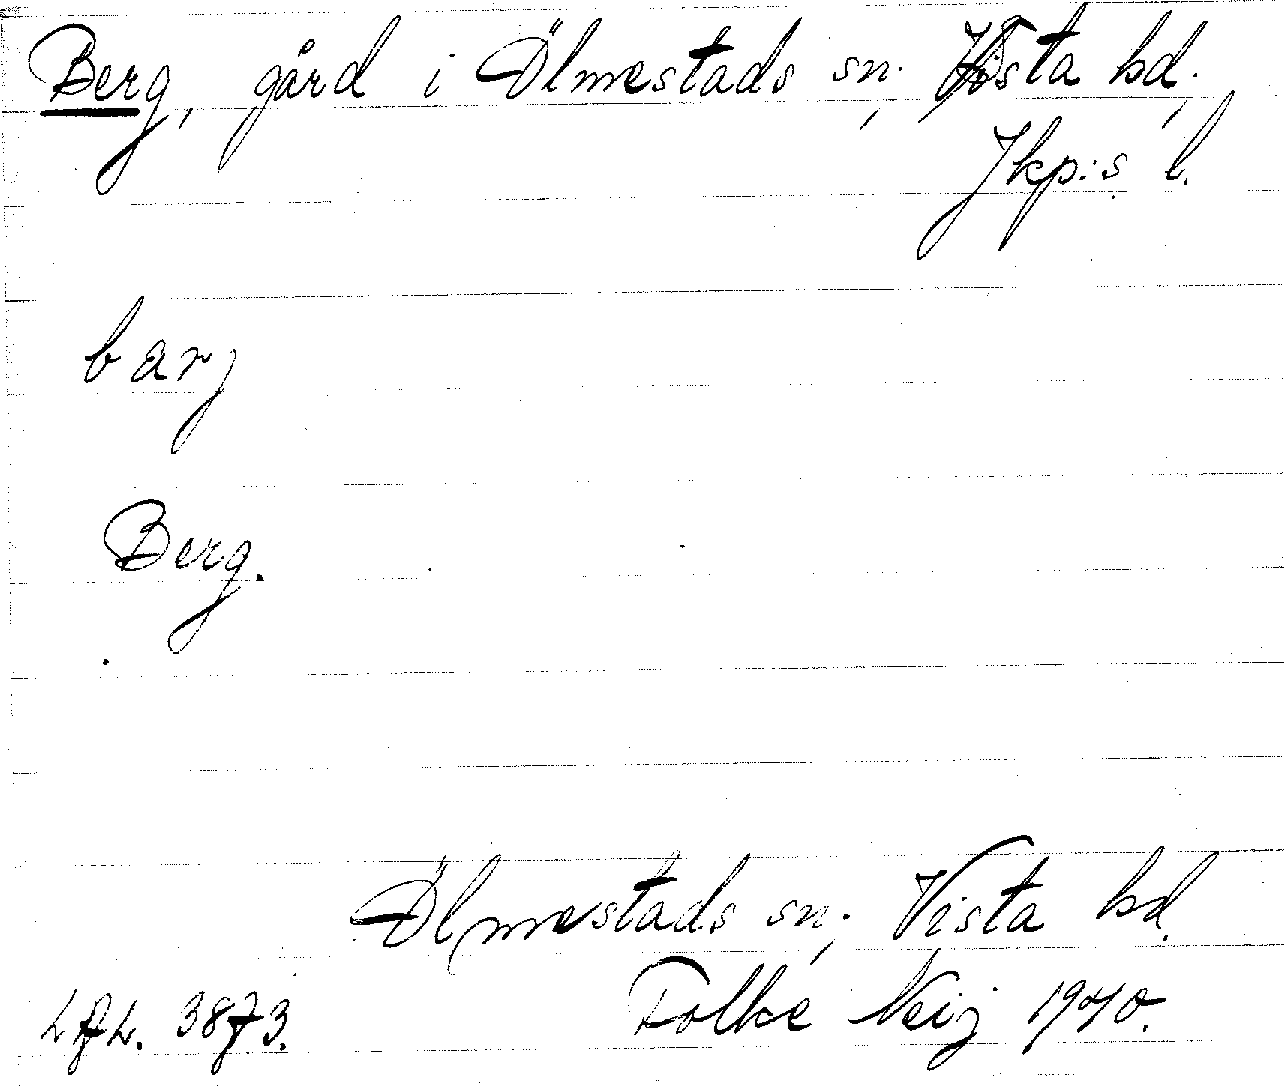 Berg, gård i Ölmestads sn. Vista hd.
Jkp:s l.
barj
Berg.
Ölmestads sn. Vista hd.
Folke Neij 1940.
3873.